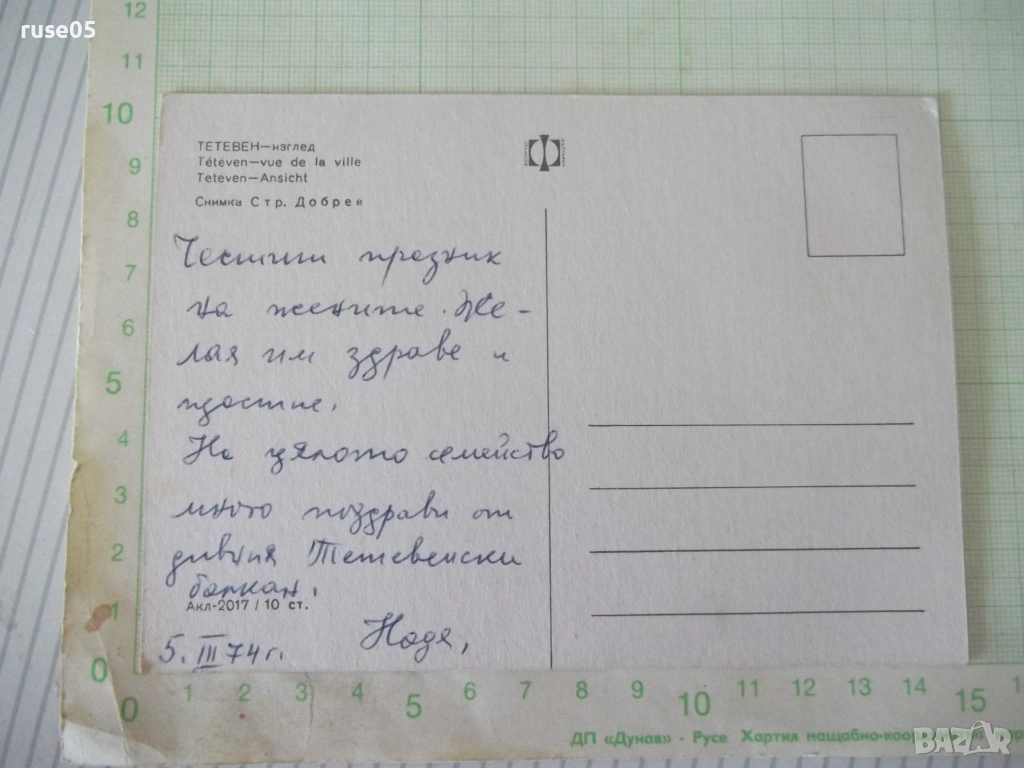 ruse05
12
11
10
9
8
7
6
5
4
3
2
1
0
ТЕТЕВЕН—изглед
Tétéven—vue de la ville
Teteven—Ansicht
Снимка Стр. Добрев
Честит празник
на жените. Же-
лая им здраве и
щастие.
На цялото семейство
много поздрави от
дивния Тетевенски
балкан.
Акл-2017 / 10 ст.
5. III 74 г.
Надя,
0 1 2 3 4 5 6 7 8 9 10 11 12 13 14 15
ДП «Дунав» - Русе Хартия мащабно-коор
BAZAR